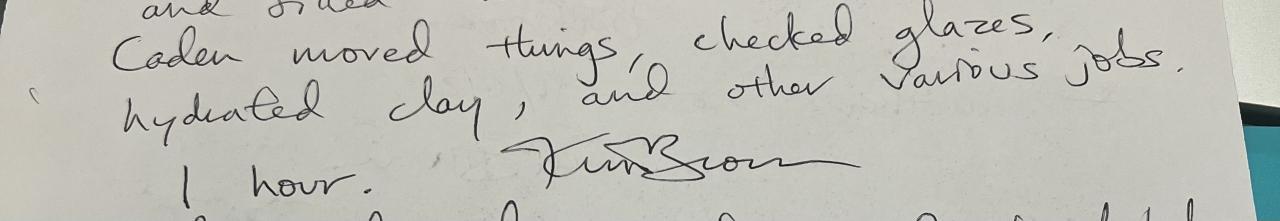 and
Caden moved things, checked glazes,
hydrated clay, and other various jobs.
1 hour. Kim Brown